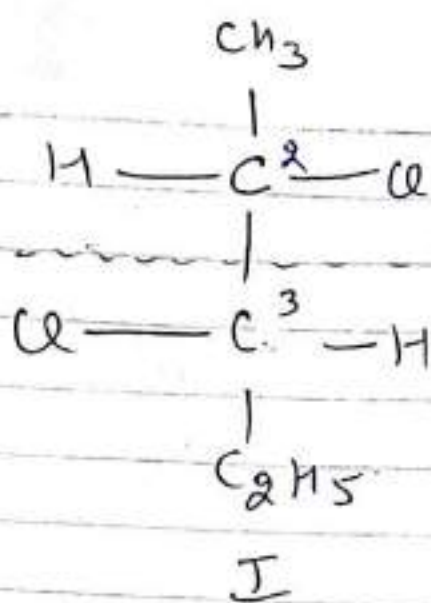 CH3
H — C2 — Cl
Cl — C.3 — H
C2H5
I